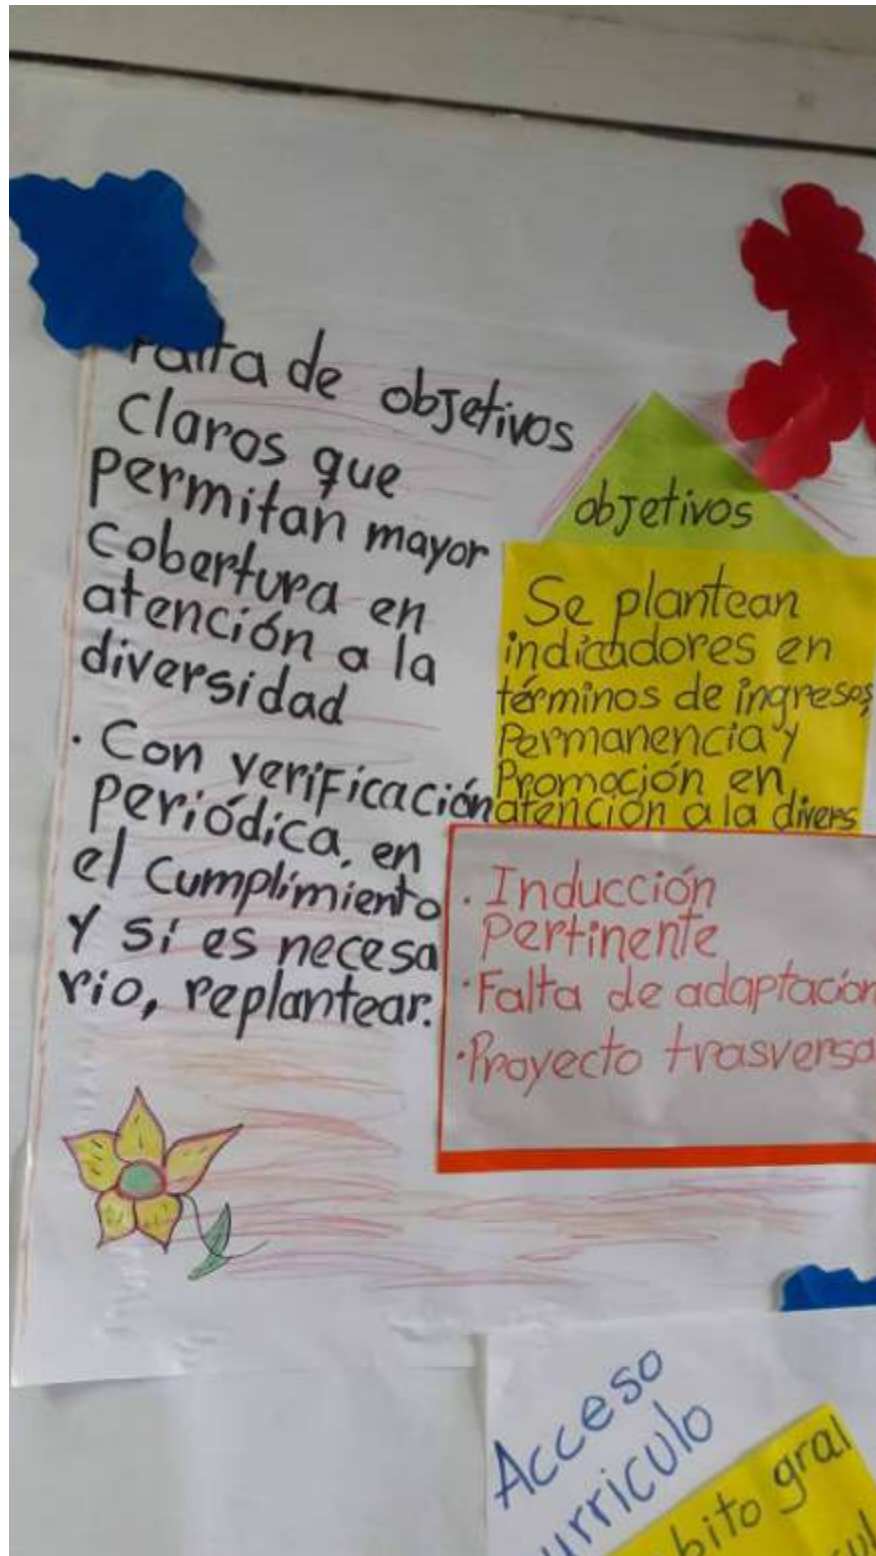 Falta de objetivos
Claros que
permitan mayor
Cobertura en
atención a la
diversidad
· Con verificación
periódica, en
el cumplimiento
y si es necesa
rio, replantear.
objetivos
Se plantean
indicadores en
términos de ingresos,
Permanencia y
Promoción en
atención a la divers
· Inducción
Pertinente
· Falta de adaptación
· Proyecto trasversa
Acceso
urriculo
bito gral